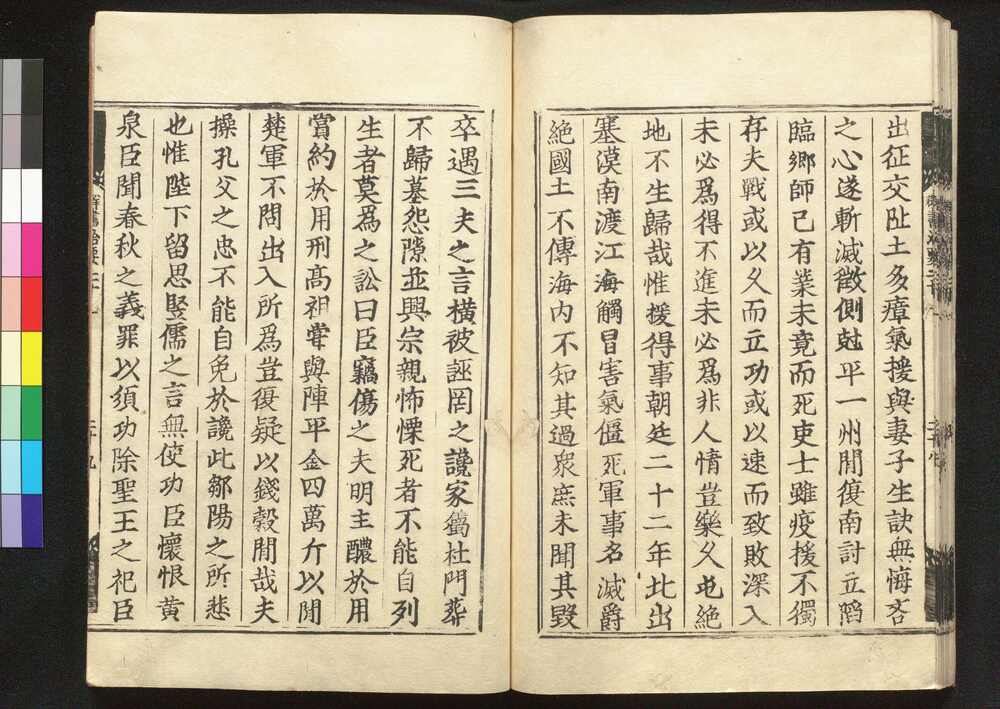 出征交阯土多瘴氣援與妻子生訣無悔吝
之心遂斬滅徵側尅平一州閒復南討立䧟
臨鄉師已有業未竟而死吏士雖疫援不獨
存夫戰或以久而立功或以速而致敗深入
未必爲得不進未必爲非人情豈樂久屯絕
地不生歸哉惟援得事朝廷二十二年北出
塞漠南渡江海觸冒害氣僵死軍事名滅爵
絕國土不傳海內不知其過衆庶未聞其毀
卒遇三夫之言橫被誣罔之讒家屬杜門葬
不歸墓怨隙並興宗親怖慄死者不能自列
生者莫爲之訟曰臣竊傷之夫明主醲於用
賞約於用刑高祖甞與陳平金四萬斤以閒
楚軍不問出入所爲豈復疑以錢穀閒哉夫
操孔父之忠不能自免於讒此鄒陽之所悲
也惟陛下留思竪儒之言無使功臣懷恨黃
泉臣聞春秋之義罪以須功除聖王之祀臣
群書治要二十
二十九